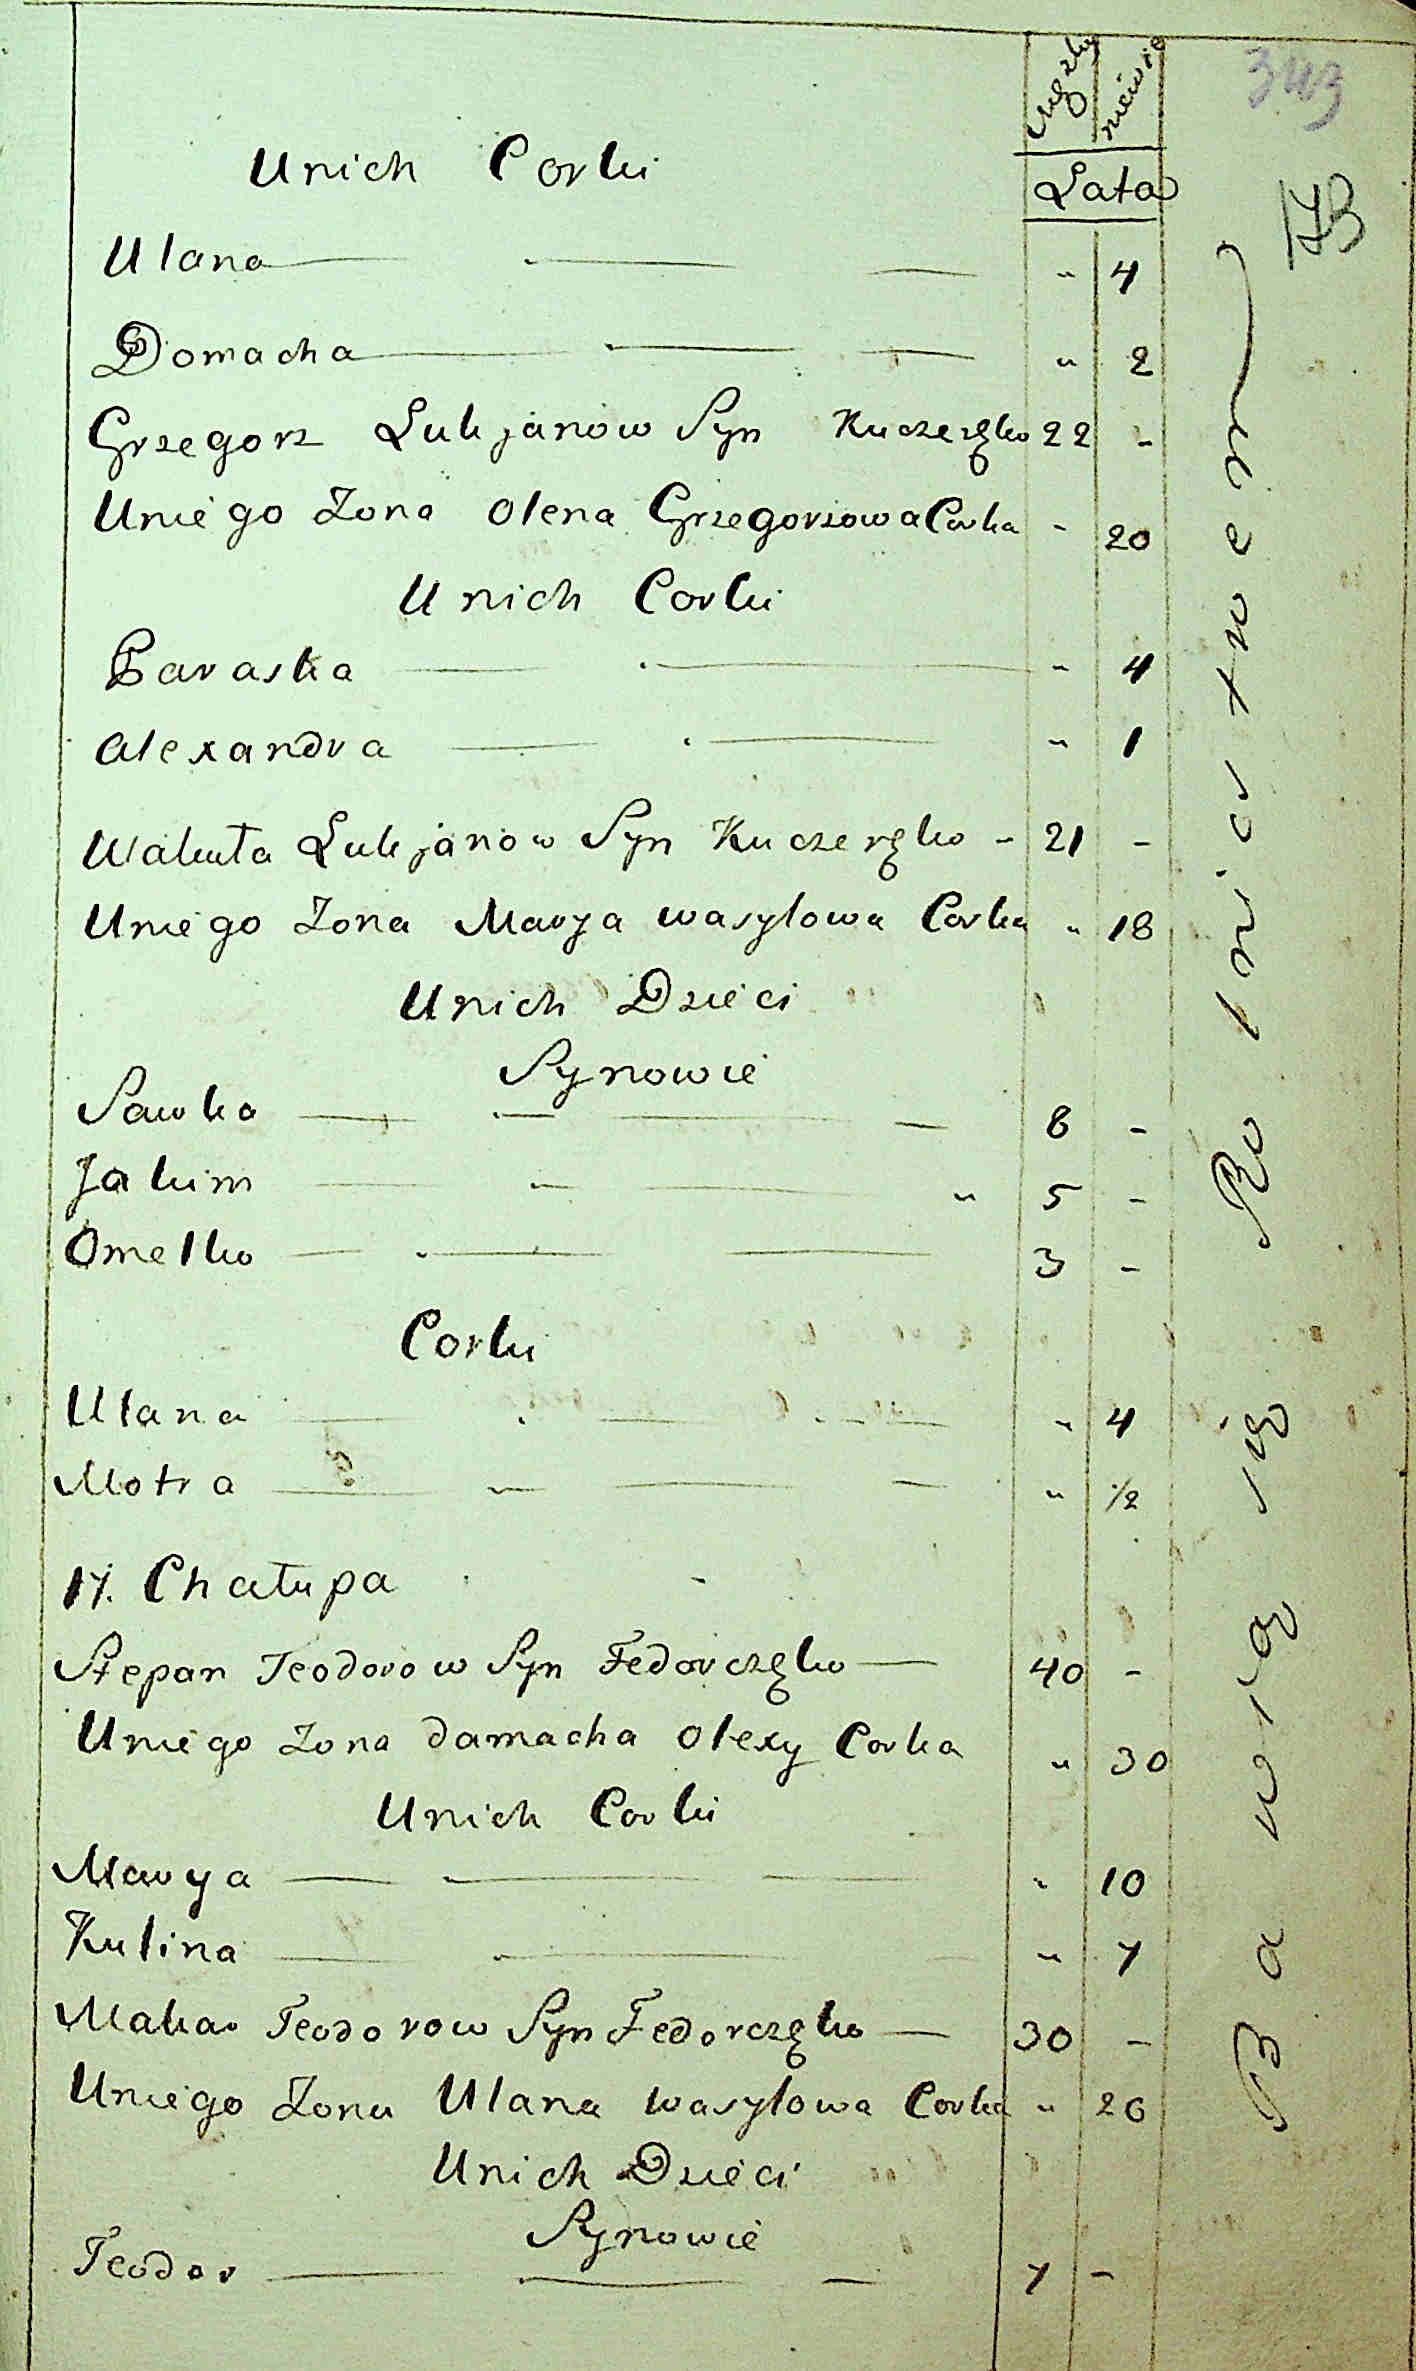 343
173
Męzkie
niewie
Lata
Unich Corki
Ulana — — — " 4
Domacha — — — " 2
Grzegorz Lukjanow Syn Kuczeręko 22 -
Uniego Zona Olena Grzegorzowa Corka - 20
Unich Corki
Paraska — — - 4
Alexandra — — " 1
Wakuła Lukjanow Syn Kuczeręko - 21 -
Uniego Zona Marya wasylowa Corka " 18
Unich Dzieci
Synowie
Sawka — — — — 8 -
Jakim — — — " 5 -
Omelko — — — 3 -
Corki
Ulana — — — " 4
Motra — — — — " 1/2
17. Chałupa
Stepan Teodorow Syn Fedorczęko — 40 -
Uniego Zona Damacha Olexy Corka " 30
Unich Corki
Marya — — — " 10
Kulina — — — " 7
Makar Teodorow Syn Fedorczęko — 30 -
Uniego Zona Ulana wasylowa Corka " 26
Unich Dzieci
Synowie
Teodor — — — 7 -
Bawiąo się Rolnictwem